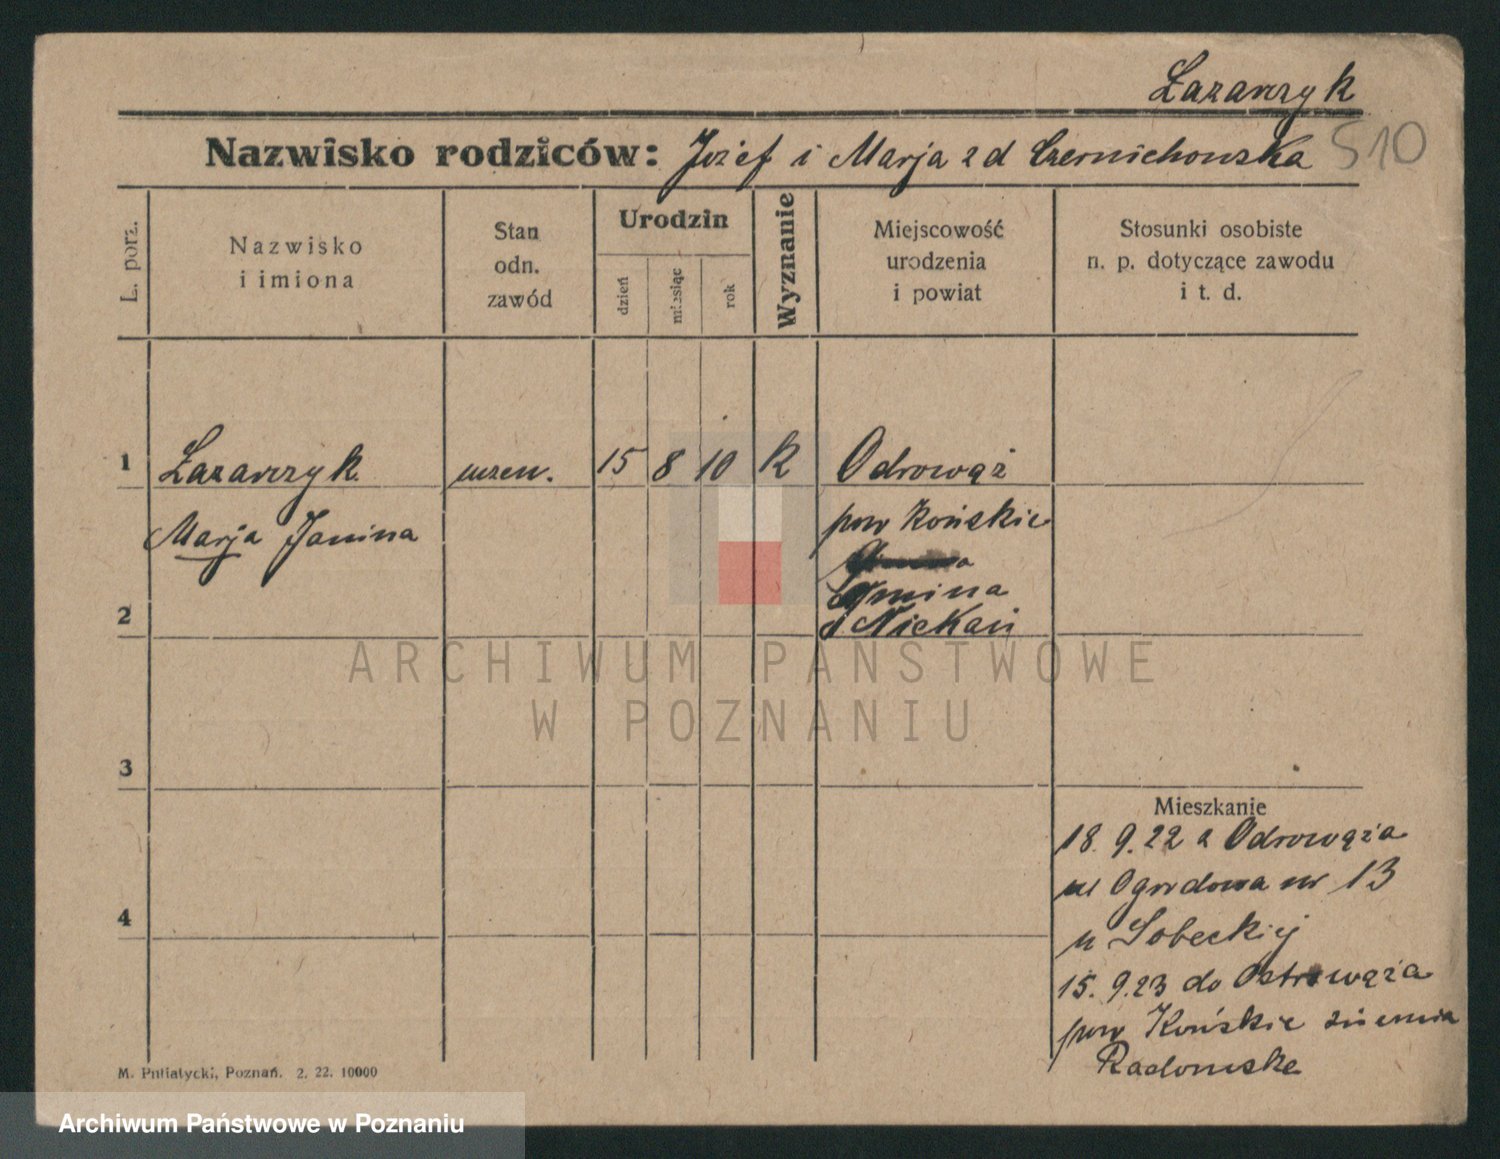 Łazarczyk
Nazwisko rodziców: Józef i Marja z d Czernichowska 510
L. porz.
Nazwisko
i imiona
Stan
odn.
zawód
Urodzin
dzień
miesiąc
rok
Wyznanie
Miejscowość
urodzenia
i powiat
Stosunki osobiste
n. p. dotyczące zawodu
i t. d.
1 Łazarczyk uczen. 15 8 10 k Odrowąż
Marja Janina pow Końskie
Gmina
2 Niekań
ARCHIWUM PAŃSTWOWE
W POZNANIU
3
Mieszkanie
18. 9. 22 z Odrowąża
ul Ogrodowa nr 13
4 u Sobeckiej
15. 9. 23 do Ostrowąża
pow Końskie ziemia
Radomske
M. Putiatycki, Poznań. 2. 22. 10000
Archiwum Państwowe w Poznaniu